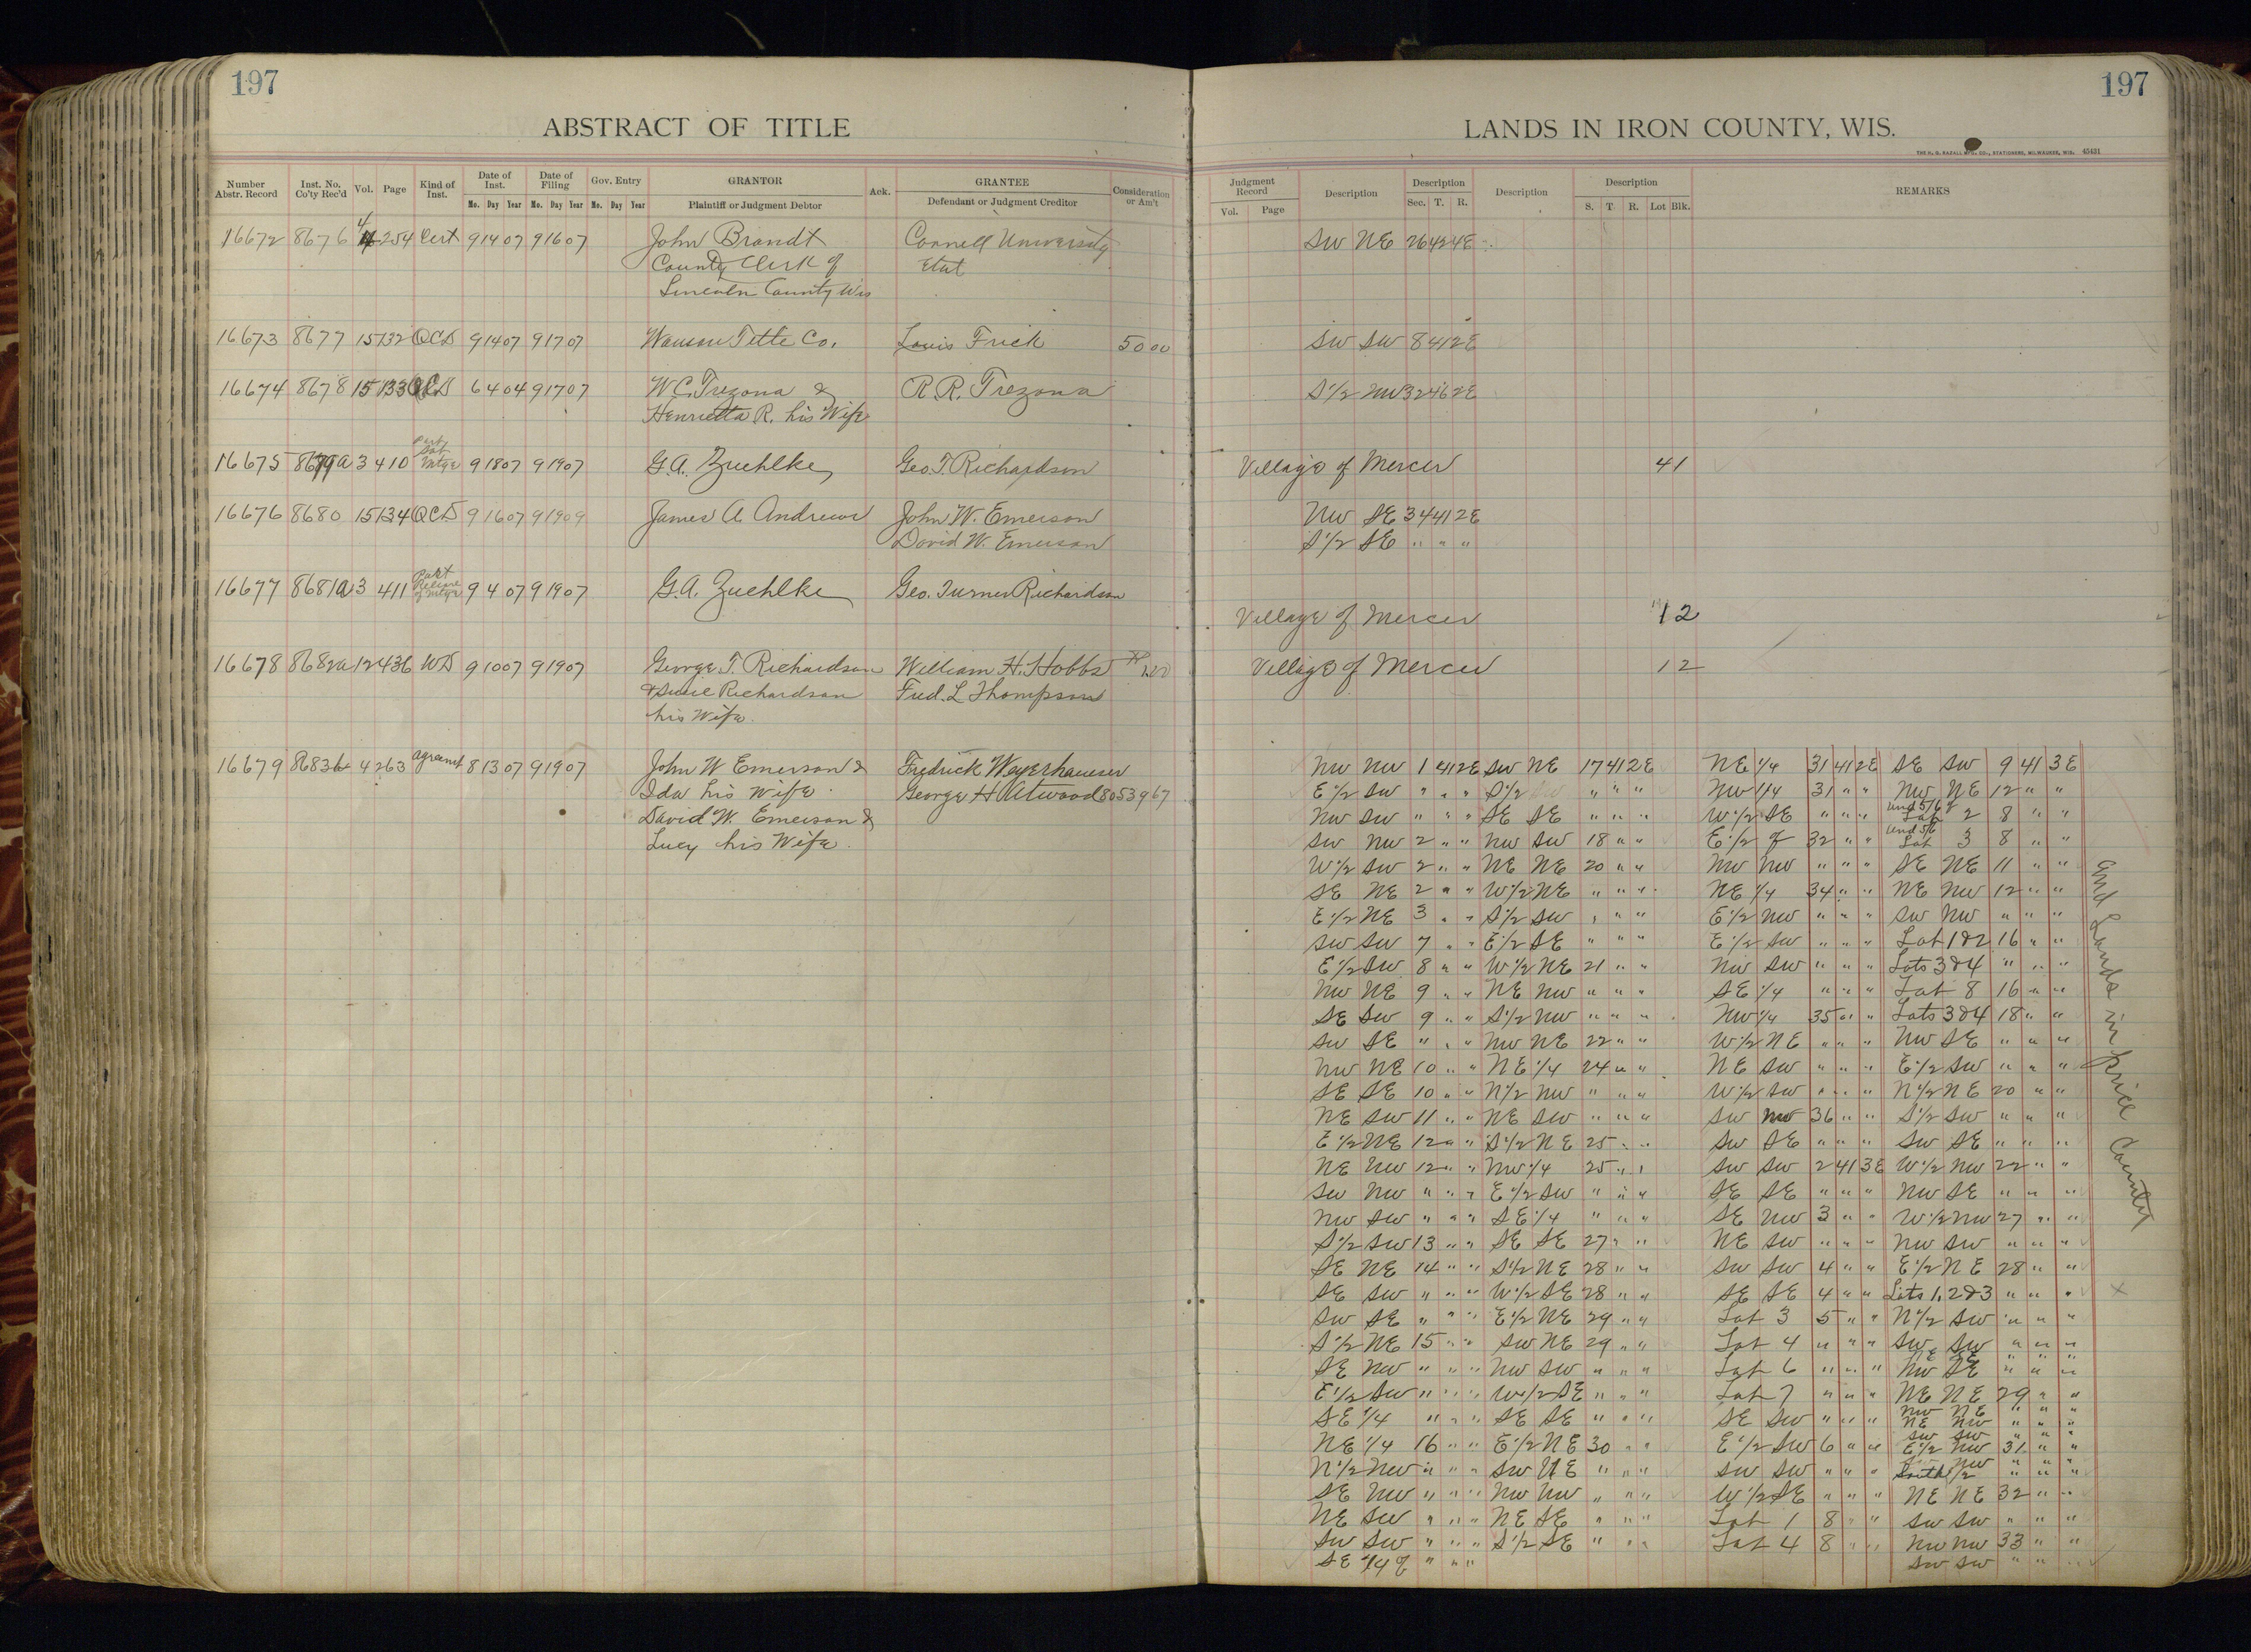 197
197
ABSTRACT OF TITLE
LANDS IN IRON COUNTY, WIS.
THE H. G. RAZALL MFG. CO., STATIONERS, MILWAUKEE, WIS. 45431
Number Abstr. Record
Inst. No. Co'ty Rec'd
Vol.
Page
Kind of Inst.
Date of Inst.
Date of Filing
Gov. Entry
GRANTOR
Ack.
GRANTEE
Consideration or Am't
Mo. Day Year Mo. Day Year Mo. Day Year
Plaintiff or Judgment Debtor
Defendant or Judgment Creditor
Judgment Record
Vol. Page
Description
Description
Sec. T. R.
Description
Description
S. T. R. Lot Blk.
REMARKS
16672 8676 4 254 Cert 9 14 07 9 16 07 John Brandt Cornell University SW NE 26 42 4E
County Clerk of Etal
Lincoln County Wis
16673 8677 15 132 QCD 9 14 07 9 17 07 Wausau Title Co. Louis Frick 50 00 SW SW 8 41 2E
16674 8678 15 133 QCD 6 4 04 9 17 07 W.C. Trezona & R.R. Trezona S1/2 NW 32 46 2E
Henrietta R. his Wife
16675 8679a 3 410 Part Sat Mtge 9 18 07 9 19 07 G.A. Zuehlke Geo. T. Richardson Village of Mercer 41
16676 8680 15 134 QCD 9 16 07 9 19 09 James A Andrews John W. Emerson NW SE 34 41 2E
David W. Emerson S1/2 SE " " "
16677 8681a 3 411 Part Release of Mtge 9 4 07 9 19 07 G.A. Zuehlke Geo. Turner Richardson
Village of Mercer 12
16678 8682a 12 436 WD 9 10 07 9 19 07 George T Richardson William H. Hobbs Village of Mercer 12
& Susie Richardson Fred. L Thompson
his Wife.
16679 8683 4 263 Agreemt 8 13 07 9 19 07 John W Emerson & Fredrick Weyerhaeuser
Ida his Wife. George H Atwood 8053967
David W. Emerson &
Lucy his Wife.
NW NW 1 41 2E SW NE 17 41 2E NE 1/4 31 41 2E SE SW 9 41 3E
E1/2 SW " " " S1/2 " " " NW 1/4 31 " " NW NE 12 " "
NW SW " " " SE SE " " " W1/2 SE " " " und 5/6 of Lot 2 8 " "
SW NW 2 " " NW SW 18 " " E1/2 of 32 " " und 5/6 Lot 3 8 " "
W1/2 SW 2 " " NE NE 20 " " NW NW " " " SE NE 11 " "
SE NE 2 " " W1/2 NE " " " NE 1/4 34 " " NE NW 12 " "
E1/2 NE 3 " " S1/2 SW " " " E1/2 NW " " " SW NW " " "
SW SW 7 " " E1/2 SE " " " E1/2 SW " " " Lot 1&2 16 " "
E1/2 SW 8 " " W1/2 NE 21 " " NW SW " " " Lots 3&4 " " "
NW NE 9 " " NE NW " " " SE 1/4 " " " Lot 8 16 " "
SE SW 9 " " S1/2 NW " " " NW 1/4 35 " " Lots 3&4 18 " "
SW SE " " " NW NE 22 " " W1/2 NE " " " NW SE " " "
NW NE 10 " " NE 1/4 24 " " NE SW " " " E1/2 SW " " "
SE SE 10 " " N1/2 NW " " " W1/2 SW " " " N1/2 NE 20 " "
NE SW 11 " " NE SW " " " SW NW 36 " " S1/2 SW " " "
E1/2 NE 12 " " S1/2 NE 25 " " SW SE " " " SW SE " " "
NE NW 12 " " NW 1/4 25 " " SW SW 2 41 3E W1/2 NW 22 " "
SW NW " " " E1/2 SW " " " SE SE " " " NW SE " " "
NW SW " " " SE 1/4 " " " SE NW 3 " " W1/2 NW 27 " "
S1/2 SW 13 " " SE SE 27 " " NE SW " " " NW SW " " "
SE NE 14 " " S1/2 NE 28 " " SW SW 4 " " E1/2 NE 28 " "
SE SW " " " W1/2 SE 28 " " SE SE 4 " " Lots 1, 2&3 " " "
SW SE " " " E1/2 NE 29 " " Lot 3 5 " " N1/2 SW " " "
S1/2 NE 15 " " SW NE 29 " " Lot 4 " " " SW SW " " "
SE NW " " " NW SW " " " Lot 6 " " " NW SE " " "
E1/2 SW " " " W1/2 SE " " " Lot 7 " " " NE NE 29 " "
NW NE " " "
SE 1/4 " " " SE SE " " " SE SW " " " NE NW " " "
SW SW " " "
NE 1/4 16 " " E1/2 NE 30 " " E1/2 SW 6 " " E1/2 NW 31 " "
N1/2 NW " " " SW NE " " " SW SW " " " South 1/2 " " "
SE NW " " " NW NW " " " W1/2 SE " " " NE NE 32 " "
NE SW " " " NE SE " " " Lot 1 8 " " SW SW " " "
SW SW " " " S1/2 SE " " " Lot 4 8 " " NW NW 33 " "
SE 1/4 of " " " SW SW " " "
and Lands in Price County